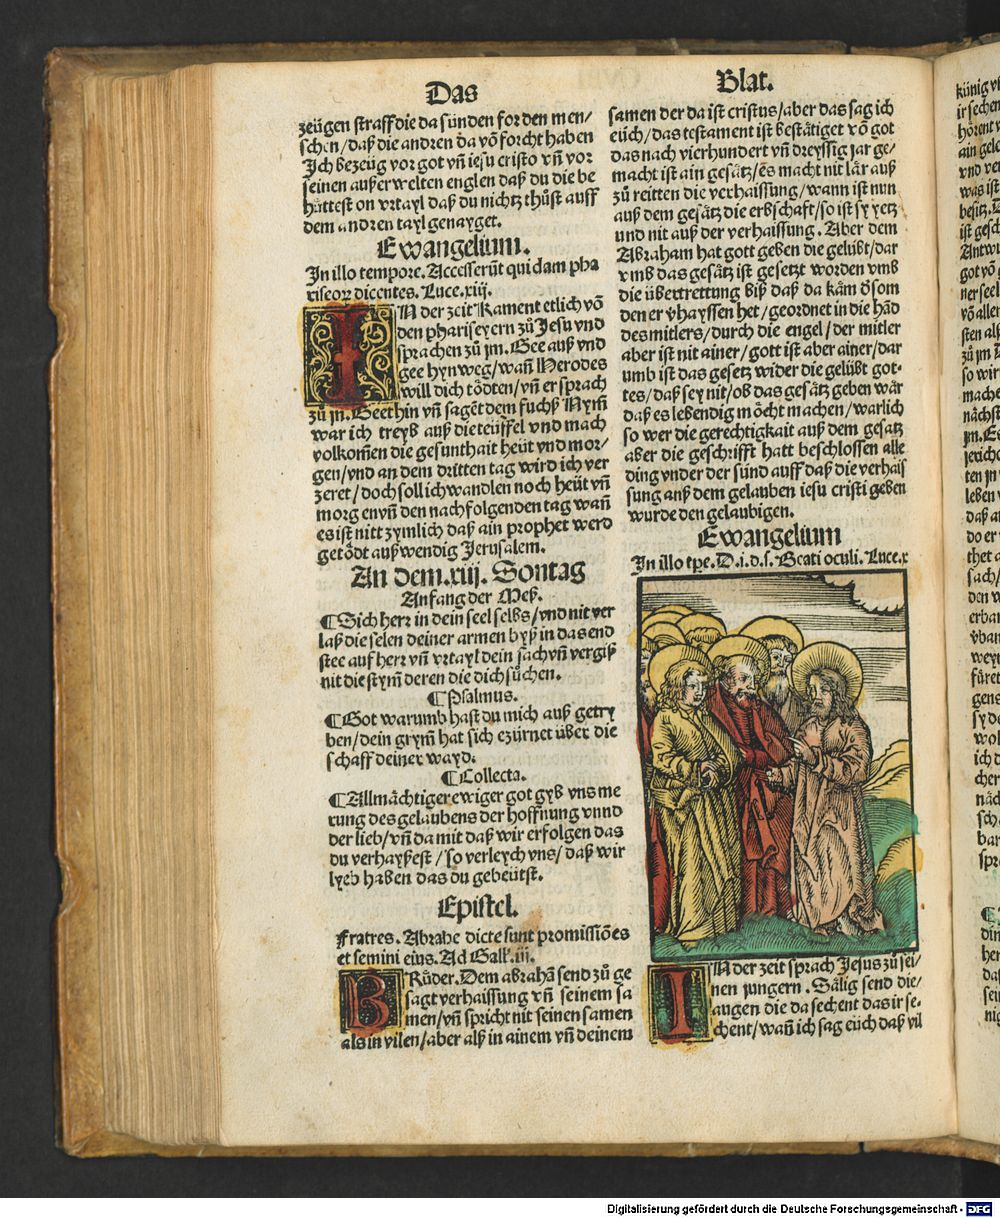 Das
zeügen straff die da sünden for den men-
schen/daß die andren da võ forcht haben
Ich bezeüg vor got vñ iesu cristo vñ vor
seinen außerwelten englen daß du die be
hattest on vrtayl daß du nichtz thüst auff
dem andren tayl genayget.
Ewangelium.
In illo tempore. Accesserũt quidam pha
riseoꝝ dicentes. Luce.xiij.
IN der zeit Kament etlich võ
den phariseyern zů Jesu vnd
sprachen zů jm. Gee auß vnd
gee hynweg/wañ Herodes
will dich tödten/vñ er sprach
zů jn. Geethin vñ sagẽt dem fuchß Nym̃
war ich treyb auß die teüffel vnd mach
volkom̃en die gesunthait heüt vnd mor-
gen/vnd an dem dritten tag wird ich ver
zeret/doch soll ich wandlen noch heüt vñ
morg en vñ den nachfolgenden tag wañ
es ist nitt zymlich daß ain prophet werd
getödt außwendig Jerusalem.
An dem.xiij. Sontag
Anfang der Meß.
¶Sich herr in dein seel selbs/vnd nit ver
laß die selen deiner armen byß in das end
stee auf herr vñ vrtayl dein sach vñ vergiß
nit die stym̃ deren die dich sůchen.
¶Psalmus.
¶Got warumb hast du mich auß getry
ben/dein grym̃ hat sich ezürnet über die
schaff deiner wayd.
¶Collecta.
¶Allmächtiger ewiger got gyb vns me
rung des gelaubens der hoffnung vnnd
der lieb/vñ da mit daß wir erfolgen das
du verhayßest/so verleych vns/daß wir
lyeb haben das du gebeütst.
Epistel.
Fratres. Abrahe dicte sunt promissiões
et semini eius. Ad Galľ.iij.
BRůder. Dem abrahã send zů ge
sagt verhaissung vñ seinem sa
men/vñ spricht nit seinen samen
als in vilen/aber alß in ainem vñ deinem
Blat.
samen der da ist cristus/aber das sag ich
eüch/das testament ist bestätiget võ got
das nach vierhundert vñ dreyssig jar ge-
macht ist ain gesätz/es macht nit lär auß
zů reitten die verhaissung/wann ist nun
auß dem gesätz die erbschaft/so ist sy yetz
und nit auß der verhaissung. Aber dem
Abraham hat gott geben die gelübt/dar
vmb das gesätz ist gesetzt worden vmb
die übertrettung biß daß da käm ð som
den er v̈hayssen het/geordnet in die hãd
des mitlers/durch die engel/der mitler
aber ist nit ainer/gott ist aber ainer/dar
umb ist das gesetz wider die gelübt got-
tes/daß sey nit/ob das gesätz geben wär
daß es lebendig möcht machen/warlich
so wer die gerechtigkait auß dem gesatz
aber die geschrifft hatt beschlossen alle
ding vnder der sünd auff daß die verhais
sung auß dem gelauben iesu cristi geben
wurde den gelaubigen.
Ewangelium
In illo tpe. D.i.d.s. Beati oculi. Luce.x
IN der zeit sprach Jesus zů sei-
nen jungern. Sälig send die/
augen die da sechent das ir se-
chent/wañ ich sag eüch daß vil
Digitalisierung gefördert durch die Deutsche Forschungsgemeinschaft - DFG